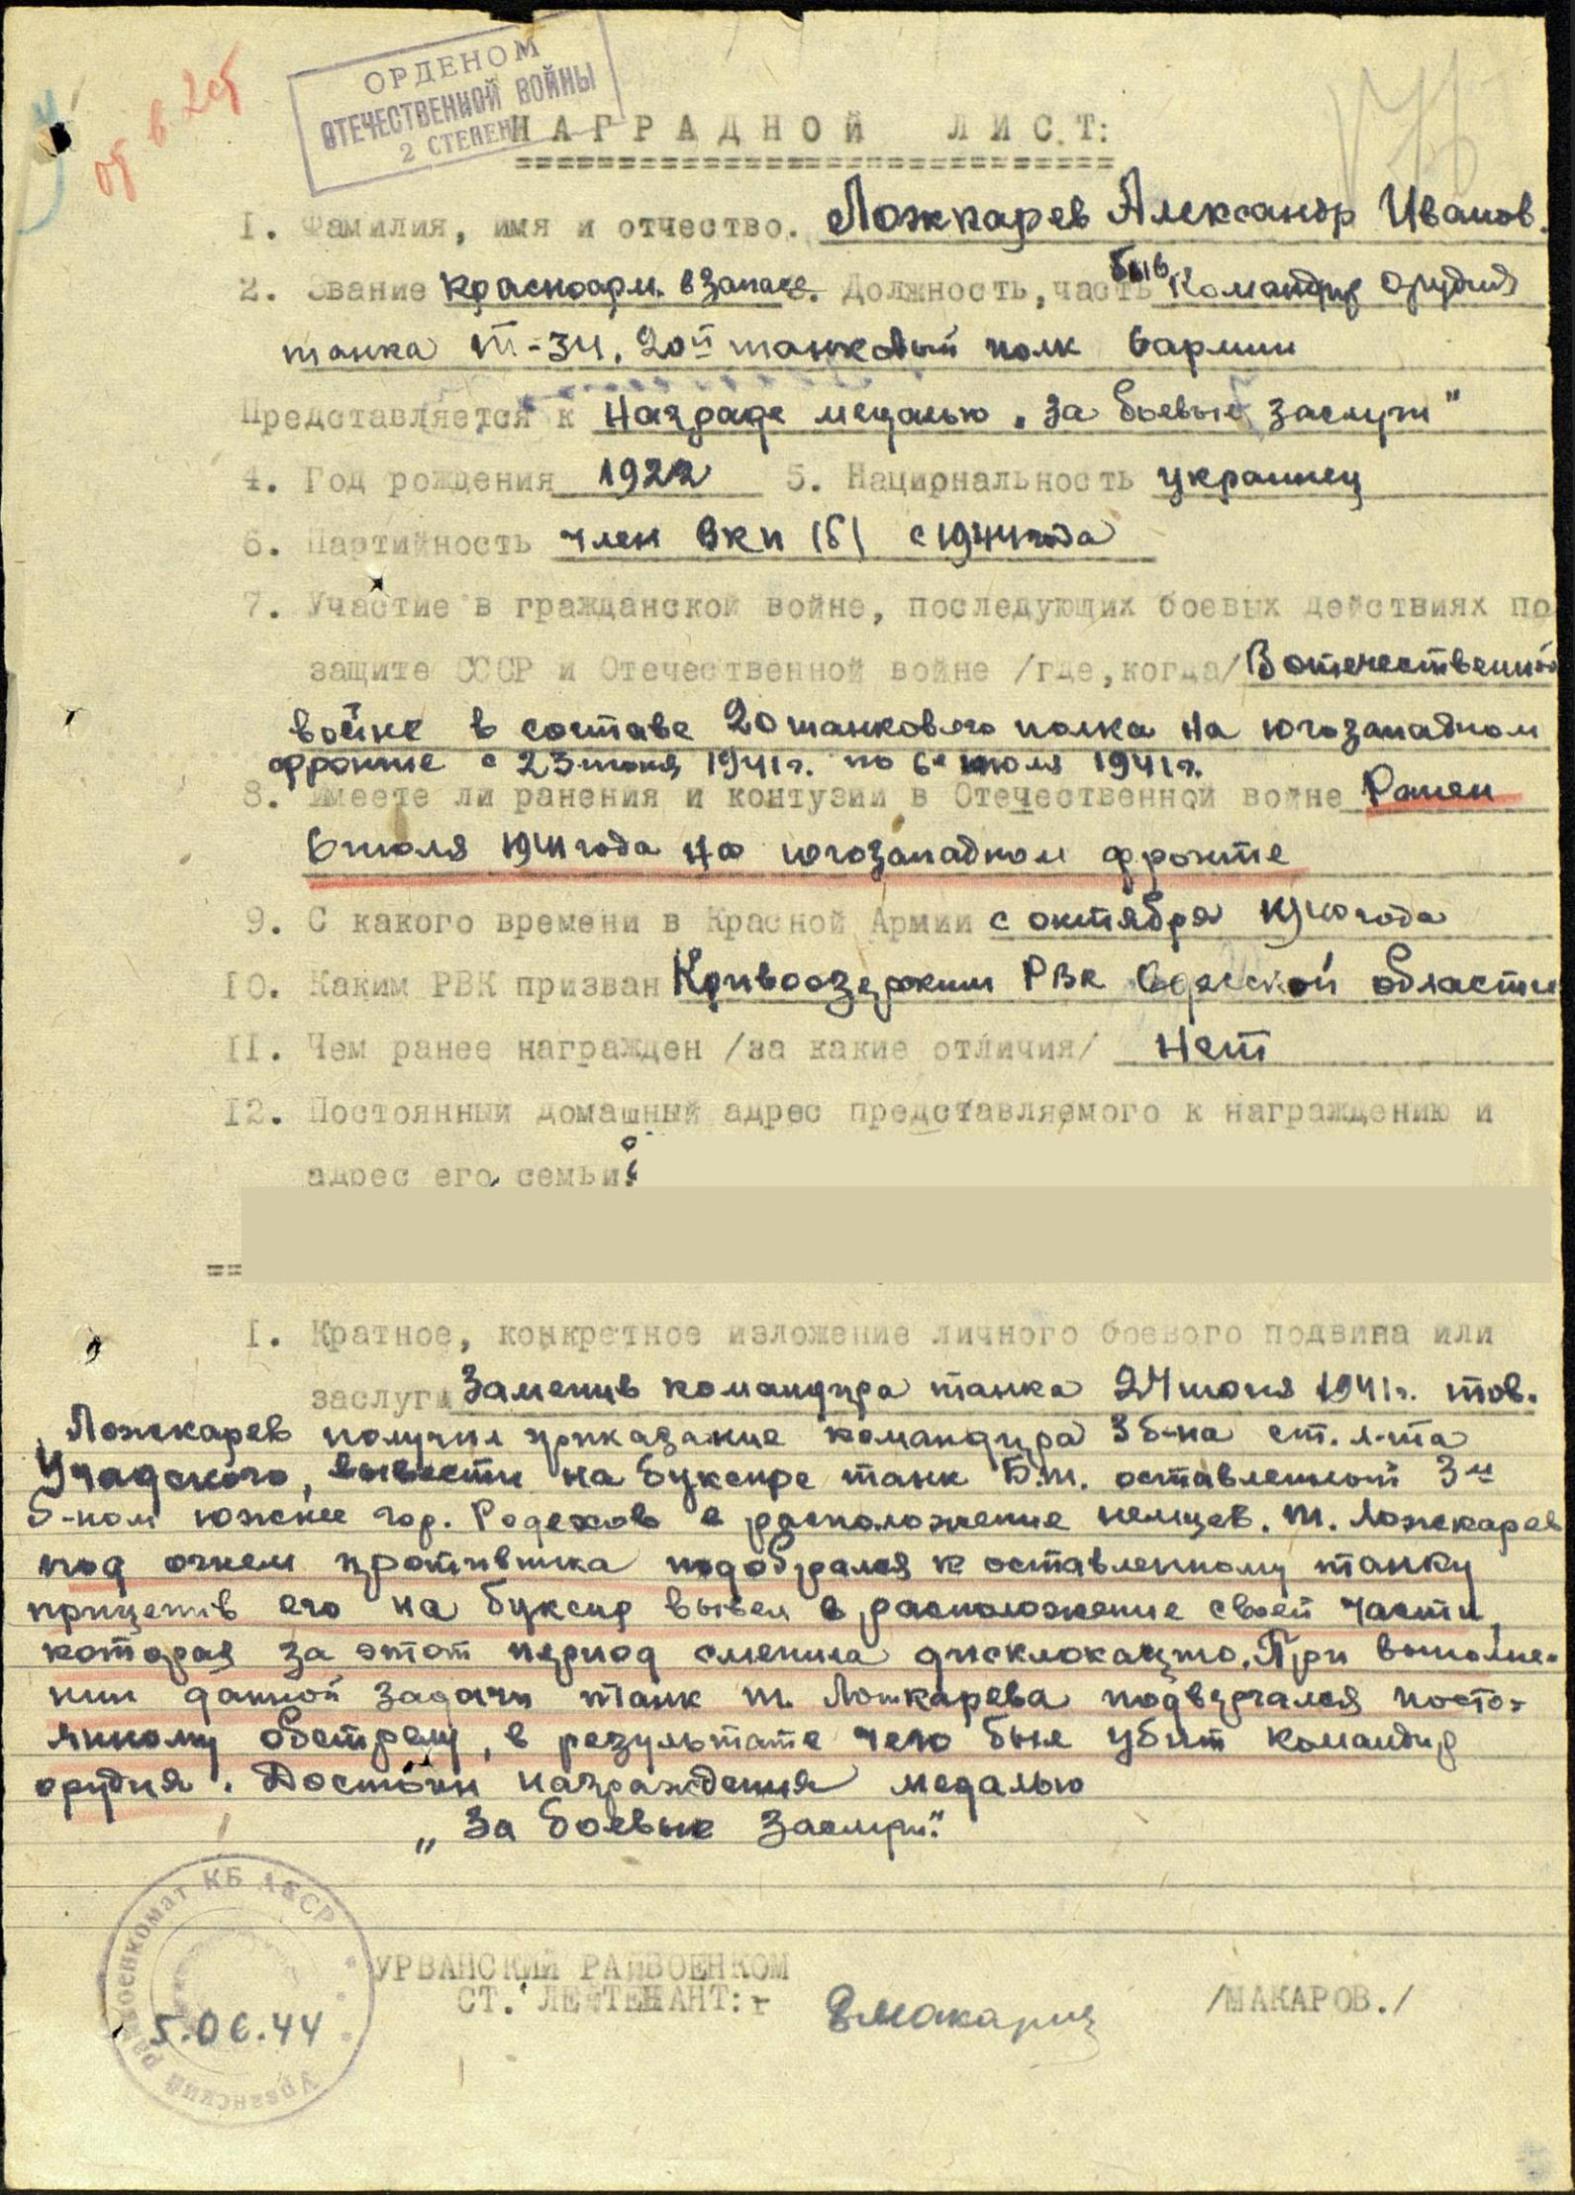 ОРДЕНОМ
ОТЕЧЕСТВЕННОЙ ВОЙНЫ
2 СТЕПЕН
НАГРАДНОЙ ЛИСТ:
I. Фамилия, имя и отчество. Ложкарев Александр Иванов.
2. Звание красноарм. в запасе 3. Должность, часть быв командир орудия
танка Т-34, 20й танковый полк 6 армии
Представляется к награде медалью „За боевые заслуги"
4. Год рождения 1922 5. Национальность украинец
6. Партийность член ВКП(б) с 1944 года
7. Участие в гражданской войне, последующих боевых действиях по
защите СССР и Отечественной войне /где, когда/ В отечественной
войне в составе 20 танкового полка на югозападном
фронте с 23 июня 1941 г. по 6е июля 1941 г.
8. Имеете ли ранения и контузии в Отечественной войне Ранен
6 июля 1941 года на югозападном фронте
9. С какого времени в Красной Армии с октября 1940 года
10. Каким РВК призван Кривоозерским РВК Одесской области
II. Чем ранее награжден /за какие отличия/ Нет
I2. Постоянный домашный адрес представляемого к награждению и
адрес его семьи:
I. Кратное, конкретное изложение личного боевого подвига или
заслуги Заменив командира танка 24 июня 1941 г. тов.
Ложкарев получил приказание командира 3 б-на ст. л-та
вывести на буксире танк Б.Т. оставленный 3м
б-ном южнее гор. Радехов в расположение немцев. т. Ложкарев
под огнем противника подобрался к оставленному танку
прицепив его на буксир вывел в расположение своей части,
которая за этот период сменила дисклокацию. При выполне-
нии данной задачи танк т. Ложкарева подвергался посто-
янному обстрелу, в результате чего был убит командир
орудия. Достоин награждения медалью
„За боевые заслуги."
Урванский райвоенкомат КБ АССР
5.06.44
УРВАНСКИЙ РАЙВОЕНКОМ
СТ. ЛЕЙТЕНАНТ:- /МАКАРОВ./